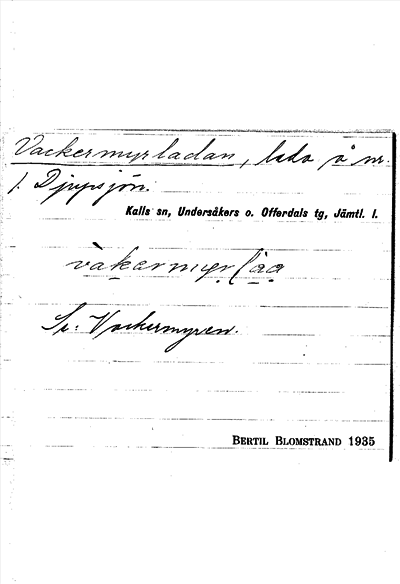 Vackermyrladan, lada å nr.
1. Djupsjön.
Kalls sn, Undersåkers o. Offerdals tg, Jämtl. l.
Se: Vackermyren.
BERTIL BLOMSTRAND 1935